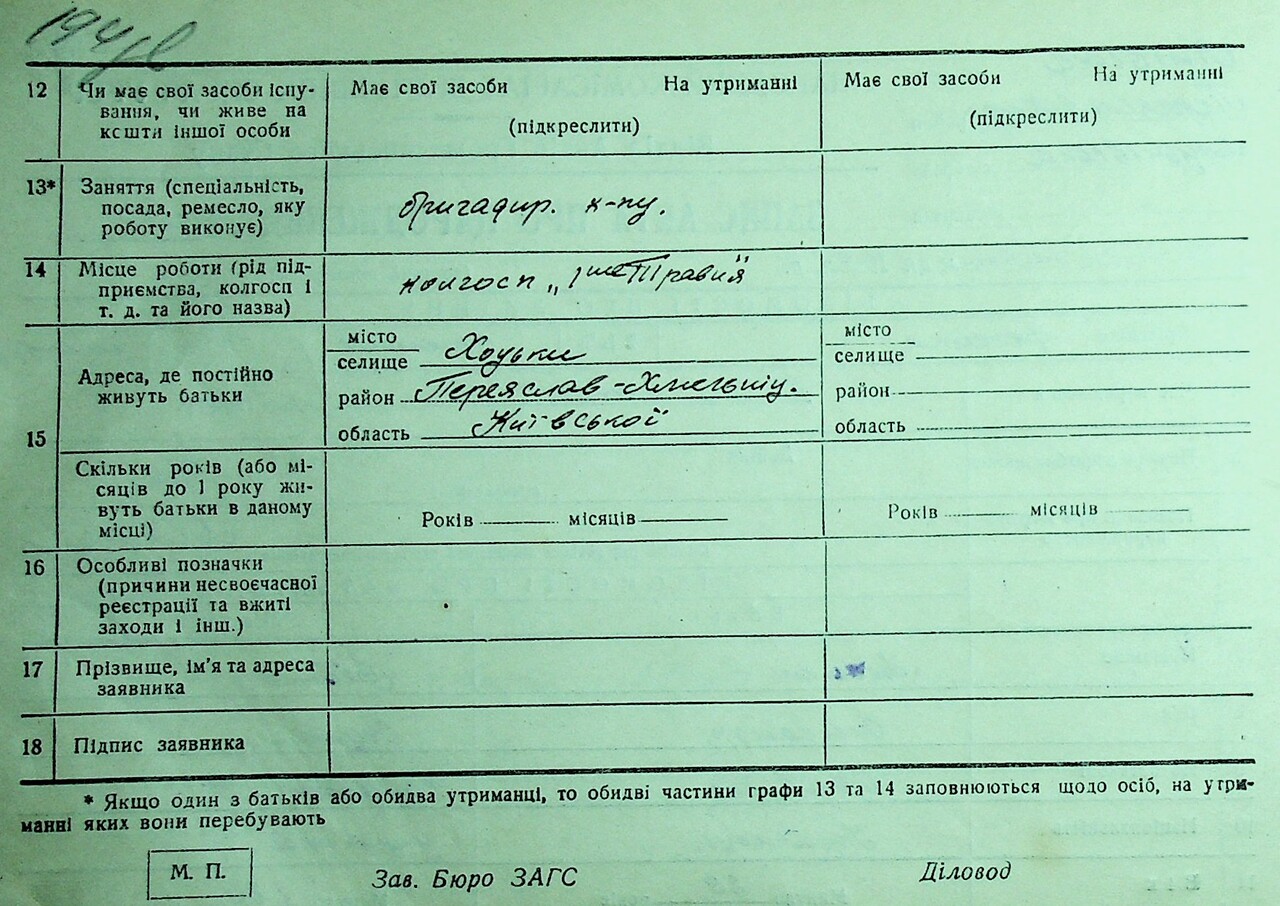 12 Чи має свої засоби існу- Має свої засоби На утриманні Має свої засоби На утриманні
вання, чи живе на
кошти іншої особи (підкреслити) (підкреслити)
13* Заняття (спеціальність,
посада, ремесло, яку бригадир. к-пу.
роботу виконує)
14 Місце роботи (рід під-
приємства, колгосп і колгосп „1ше Травня"
т. д. та його назва)
15 Адреса, де постійно
живуть батьки
місто місто
селище Хоцьки селище
район Переяслав-Хмельниц. район
область Київської область
Скільки років (або мі-
сяців до 1 року жи-
вуть батьки в даному
місці) Років місяців Років місяців
16 Особливі позначки
(причини несвоєчасної
реєстрації та вжиті
заходи і інш.)
17 Прізвище, ім’я та адреса
заявника
18 Підпис заявника
* Якщо один з батьків або обидва утриманці, то обидві частини графи 13 та 14 заповнюються щодо осіб, на утри-
манні яких вони перебувають
М. П. Зав. Бюро ЗАГС Діловод